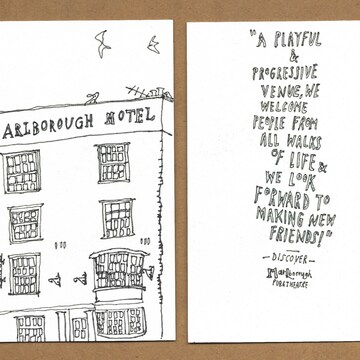 ARLBOROUGH HOTEL
"A PLAYFUL
&
PROGRESSIVE
VENUE, WE
WELCOME
PEOPLE FROM
ALL WALKS
OF LIFE &
WE LOOK
FORWARD TO
MAKING NEW
FRIENDS!"
- DISCOVER -
Marlborough
PUB & THEATRE